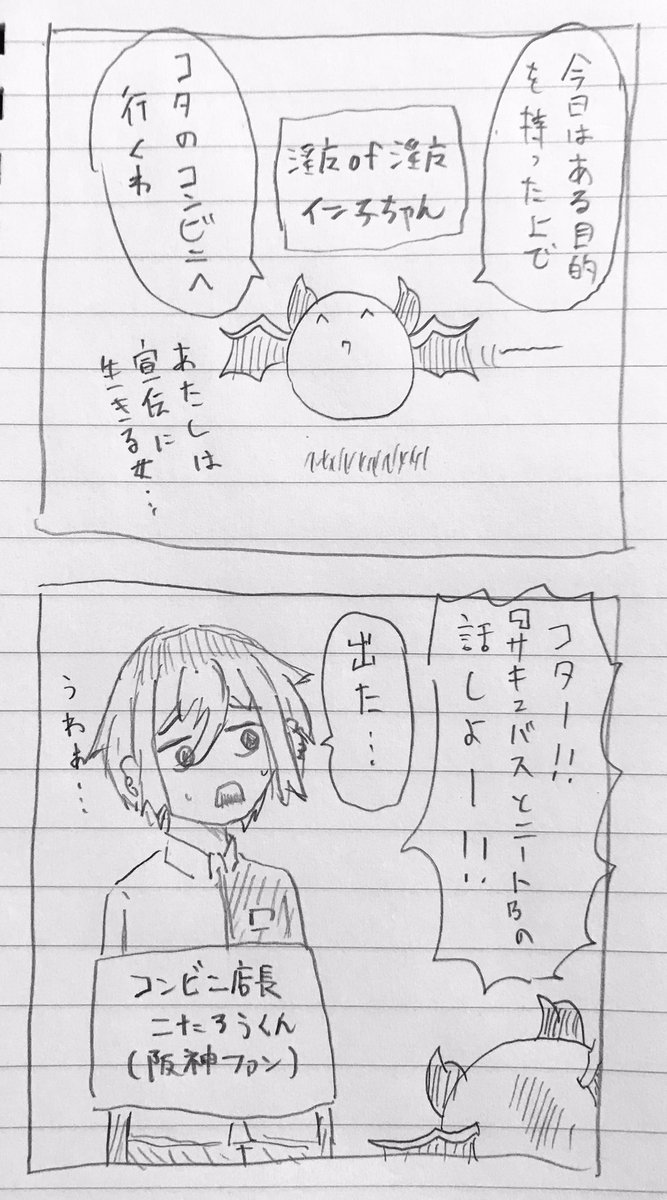 今日はある目的
を持った上で
淫友of淫友
イン子ちゃん
コタのコンビニへ
行くわ
あたしは
宣伝に
生きる女…
コター!!
サキュバスとニートの
話しよー!!
出た…
うわぁ…
コンビニ店長
こたろうくん
(阪神ファン)